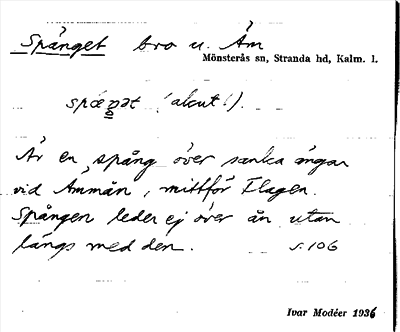 Spånget bro u. Åm
Mönsterås sn, Stranda hd, Kalm. l.
(akut!).
Är en spång över sanka ängar
vid Åmmån, mittför Flagen.
Spången leder ej över ån utan
längs med den. s. 106
Ivar Modéer 1936